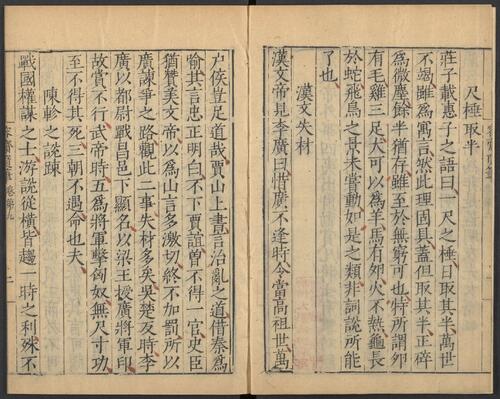 尺棰取半
莊子載惠子之語曰一尺之棰日取其半萬世
不竭雖爲寓言然此理固具蓋但取其半正碎
爲微塵餘半猶存雖至於無窮可也特所謂夘
有毛雞三足犬可以爲羊馬有夘火不𤍠龜長
於蛇飛鳥之景未嘗動如是之類非詞說所能
了也
漢文失材
漢文帝見李廣曰惜廣不逢時令當高祖世萬
户侯豈足道哉賈山上書言治亂之道借秦爲
喻其言忠正明白不下賈誼曾不得一官史臣
猶贊美文帝以爲山言多激切終不加罰所以
廣諫爭之路觀此二事失材多矣吳楚反時李
廣以都尉戰昌邑下顯名以梁王授廣將軍印
故賞不行武帝時五爲將軍擊匈奴無尺寸功
至不得其死三朝不遇命也夫
陳軫之說踈
戰國權謀之士游說從横皆趨一時之利殊不